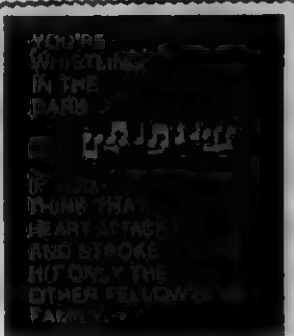 YOU'RE
WHISTLING
IN THE
DARK
IF YOU
THINK THAT
HEART ATTACK
AND STROKE
HIT ONLY THE
OTHER FELLOW'S
FAMILY.